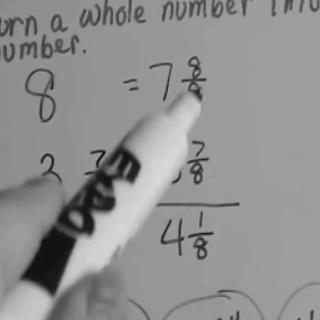 urn a whole number int
number.
8 = 7 8/8
3 7/8
4 1/8
EXPO